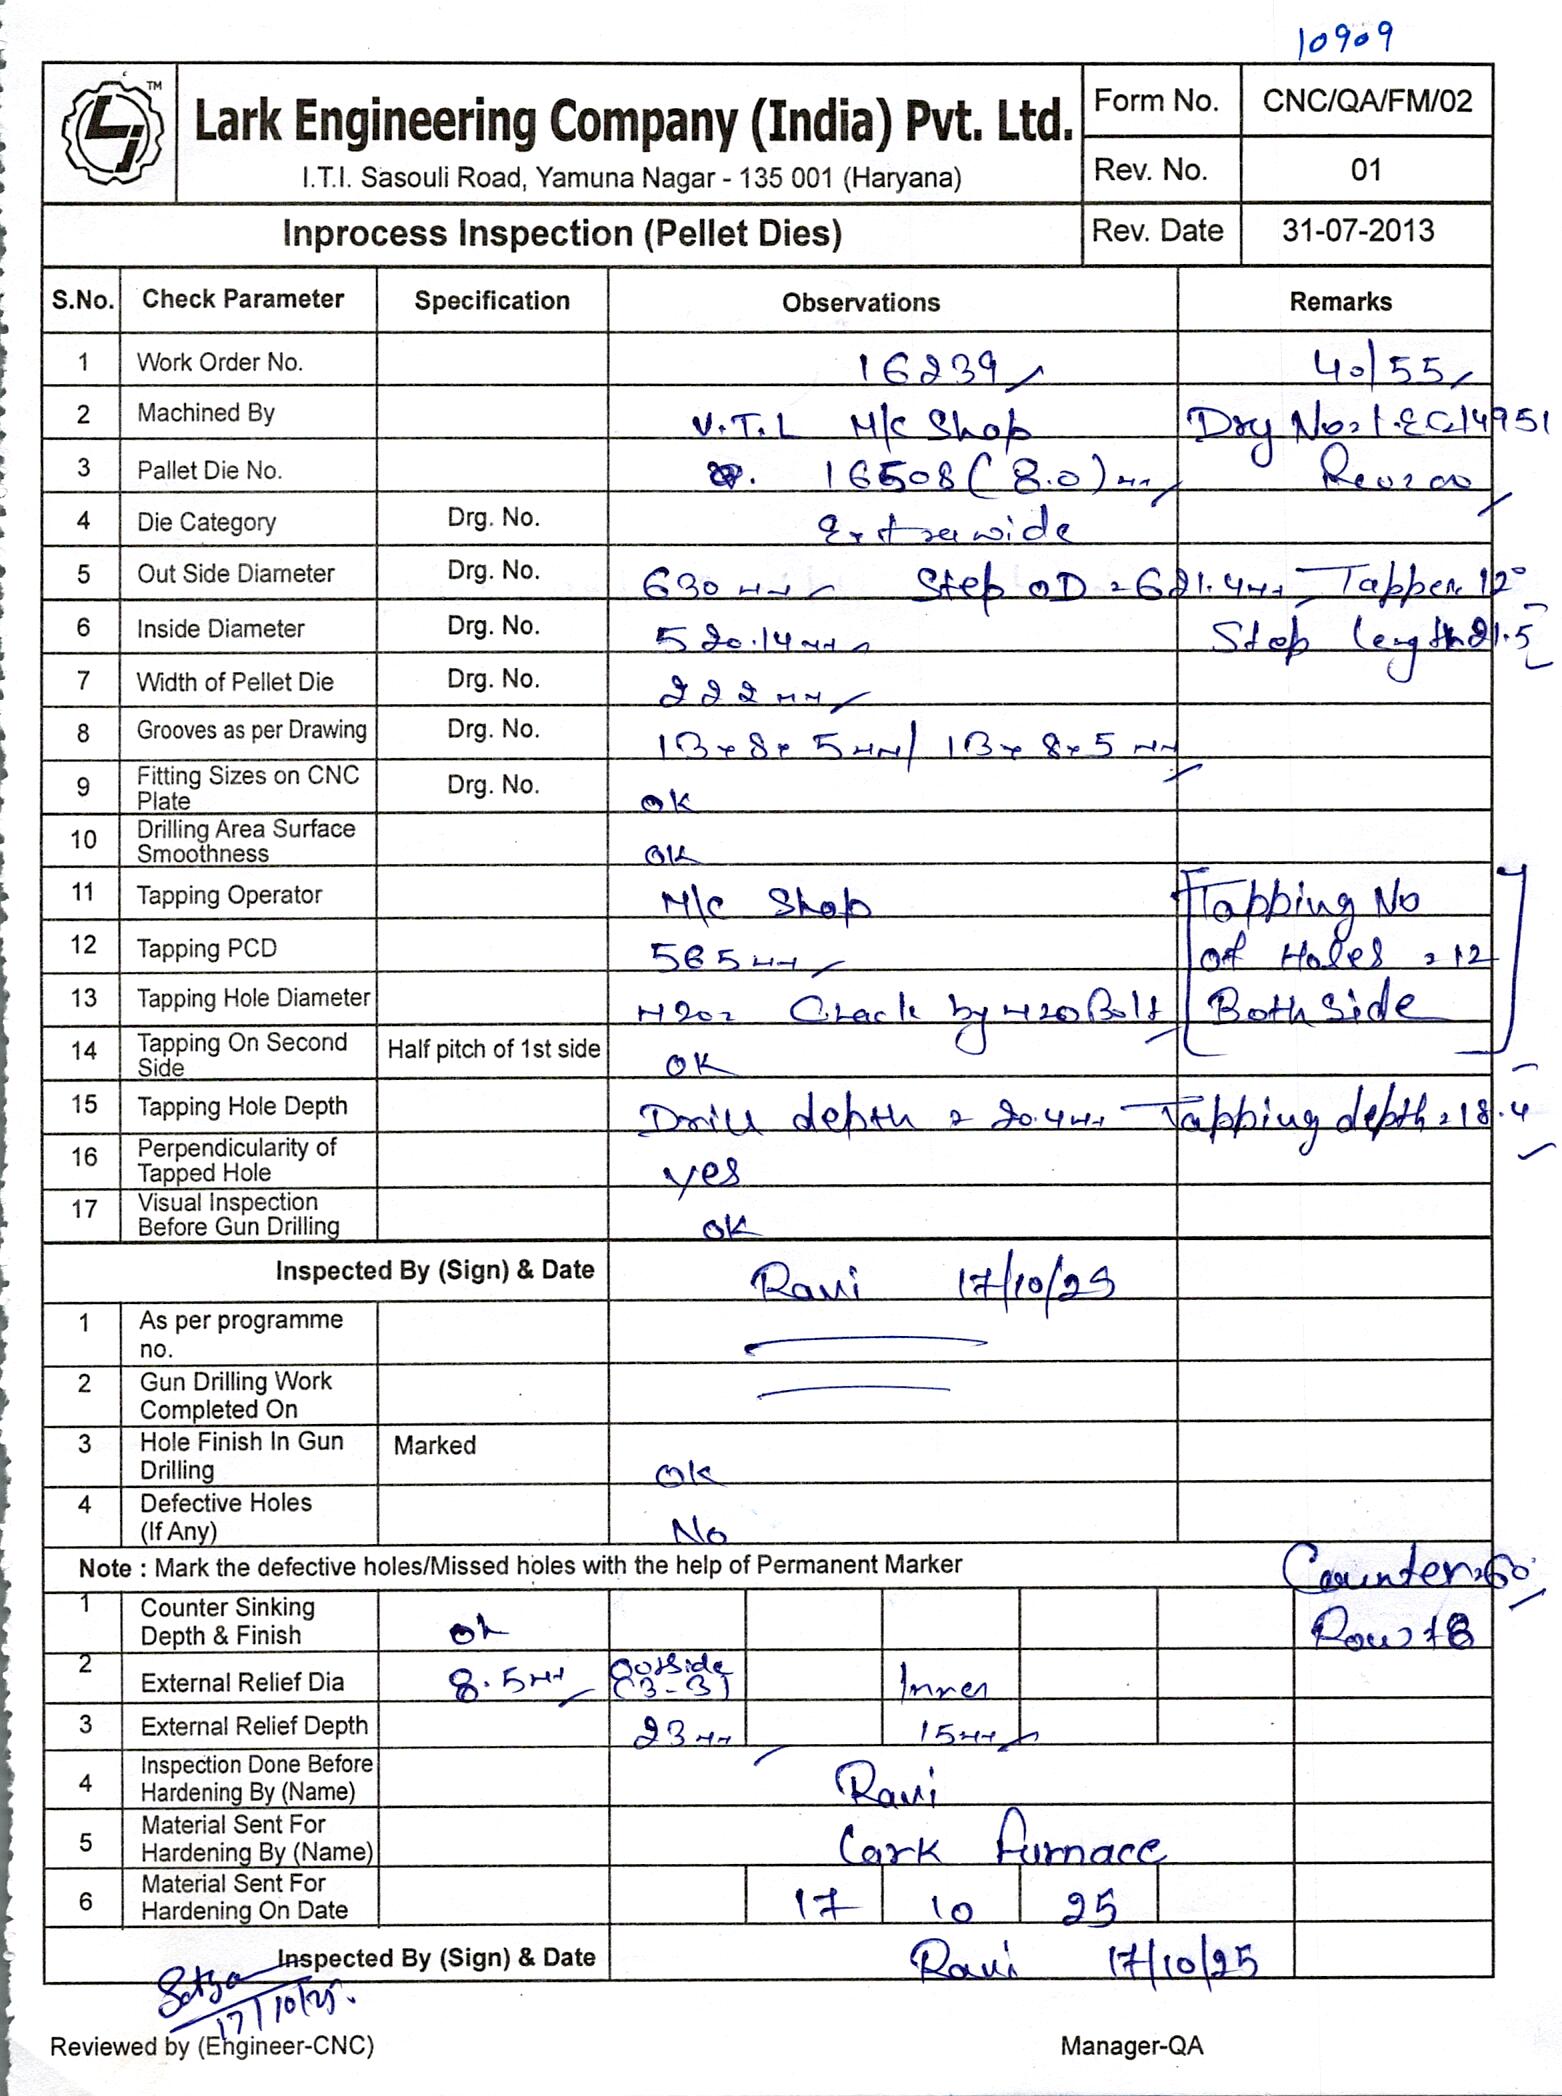 10909
TM
Lark Engineering Company (India) Pvt. Ltd.
I.T.I. Sasouli Road, Yamuna Nagar - 135 001 (Haryana)
Form No. CNC/QA/FM/02
Rev. No. 01
Inprocess Inspection (Pellet Dies) Rev. Date 31-07-2013
S.No. Check Parameter Specification Observations Remarks
1 Work Order No. 16239 40/55
2 Machined By V.T.L M/c Shop Drg No
3 Pallet Die No. 16508 (8.0)
4 Die Category Drg. No. Extra wide
5 Out Side Diameter Drg. No. 630 mm Step OD = 621.4mm Tapper 12°
6 Inside Diameter Drg. No. 520.14 mm Step length 21.5
7 Width of Pellet Die Drg. No. 222 mm
8 Grooves as per Drawing Drg. No. 13x8x5mm / 13x8x5 mm
9 Fitting Sizes on CNC Plate Drg. No. OK
10 Drilling Area Surface Smoothness OK
11 Tapping Operator M/c Shop Tapping No
12 Tapping PCD 565 mm of Holes = 12
13 Tapping Hole Diameter M20 Check by M20 Bolt Both Side
14 Tapping On Second Side Half pitch of 1st side OK
15 Tapping Hole Depth Drill depth = 20.4mm Tapping depth = 18.4
16 Perpendicularity of Tapped Hole yes
17 Visual Inspection Before Gun Drilling OK
Inspected By (Sign) & Date Ravi 17/10/25
1 As per programme no.
2 Gun Drilling Work Completed On
3 Hole Finish In Gun Drilling Marked OK
4 Defective Holes (If Any) No
Note : Mark the defective holes/Missed holes with the help of Permanent Marker Counter = 60°
1 Counter Sinking Depth & Finish ok Row
2 External Relief Dia 8.5mm Outside (3-3) Inner
3 External Relief Depth 23 mm 15mm
4 Inspection Done Before Hardening By (Name) Ravi
5 Material Sent For Hardening By (Name) Lark Furnace
6 Material Sent For Hardening On Date 17 10 25
Inspected By (Sign) & Date Ravi 17/10/25
17/10/25.
Reviewed by (Engineer-CNC) Manager-QA